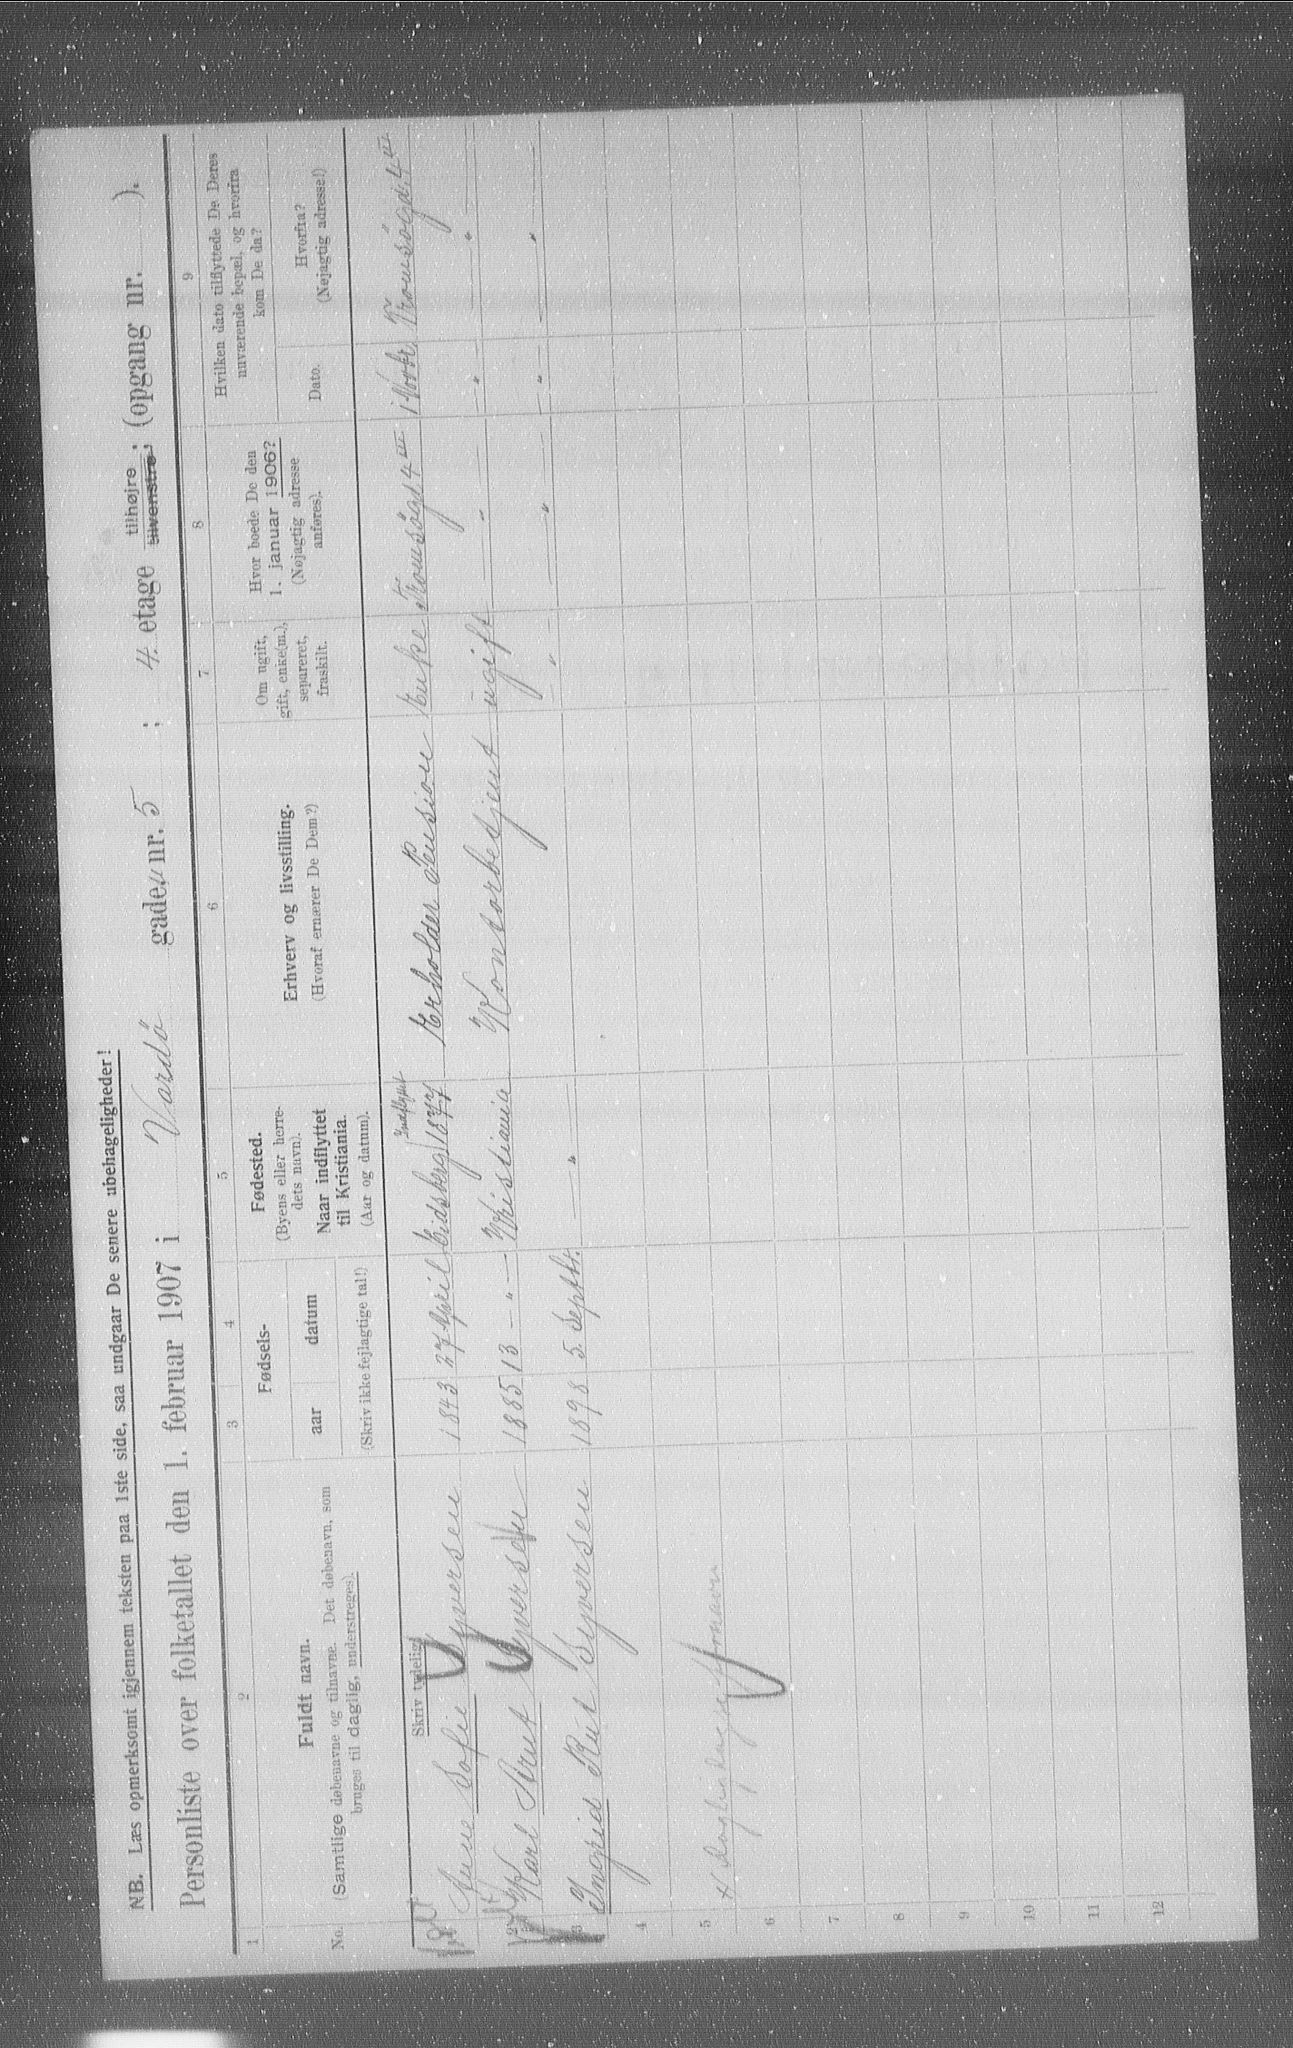 NB. Læs opmerksomt igjennem teksten paa 1ste side, saa undgaar De senere ubehageligheder!
Personliste over folketallet den 1. februar 1907 i Vardö gaden nr. 5 ; 4. etage tilhøjre tilvenstre ; (opgang nr. ).
1 2 3 4 5 6 7 8 9
No.
Fuldt navn.
(Samtlige døbenavne og tilnavne. Det døbenavn, som
bruges til daglig, understreges).
Fødsels-
aar datum
(Skriv ikke fejlagtige tal!)
Fødested.
(Byens eller herre-
dets navn).
Naar indflyttet
til Kristiania.
(Aar og datum).
Erhverv og livsstilling.
(Hvoraf ernærer De Dem?)
Om ugift,
gift, enke(m.),
separeret,
fraskilt.
Hvor boede De den
1. januar 1906?
(Nøjagtig adresse
anføres).
Hvilken dato tilflyttede De Deres
nuværende bopæl, og hvorfra
kom De da?
Dato.
Hvorfra?
(Nøjagtig adresse!)
Skriv tydelig!
1 Anne Sofie Syversen 1843 27 April Eidsberg Indflyttet 1877 Erholder Pension Enke Tromsögd. 4 Tromsögd. 4
2 Karl Arnt Syversen 1885 13 — " — Kristiania Kontorbetjent ugift — " — — " — — " —
3 Ingrid Rut Syversen 1898 5. Septbr. — " — — " — — " — — " — — " —
4
5
6
7
8
9
10
11
12